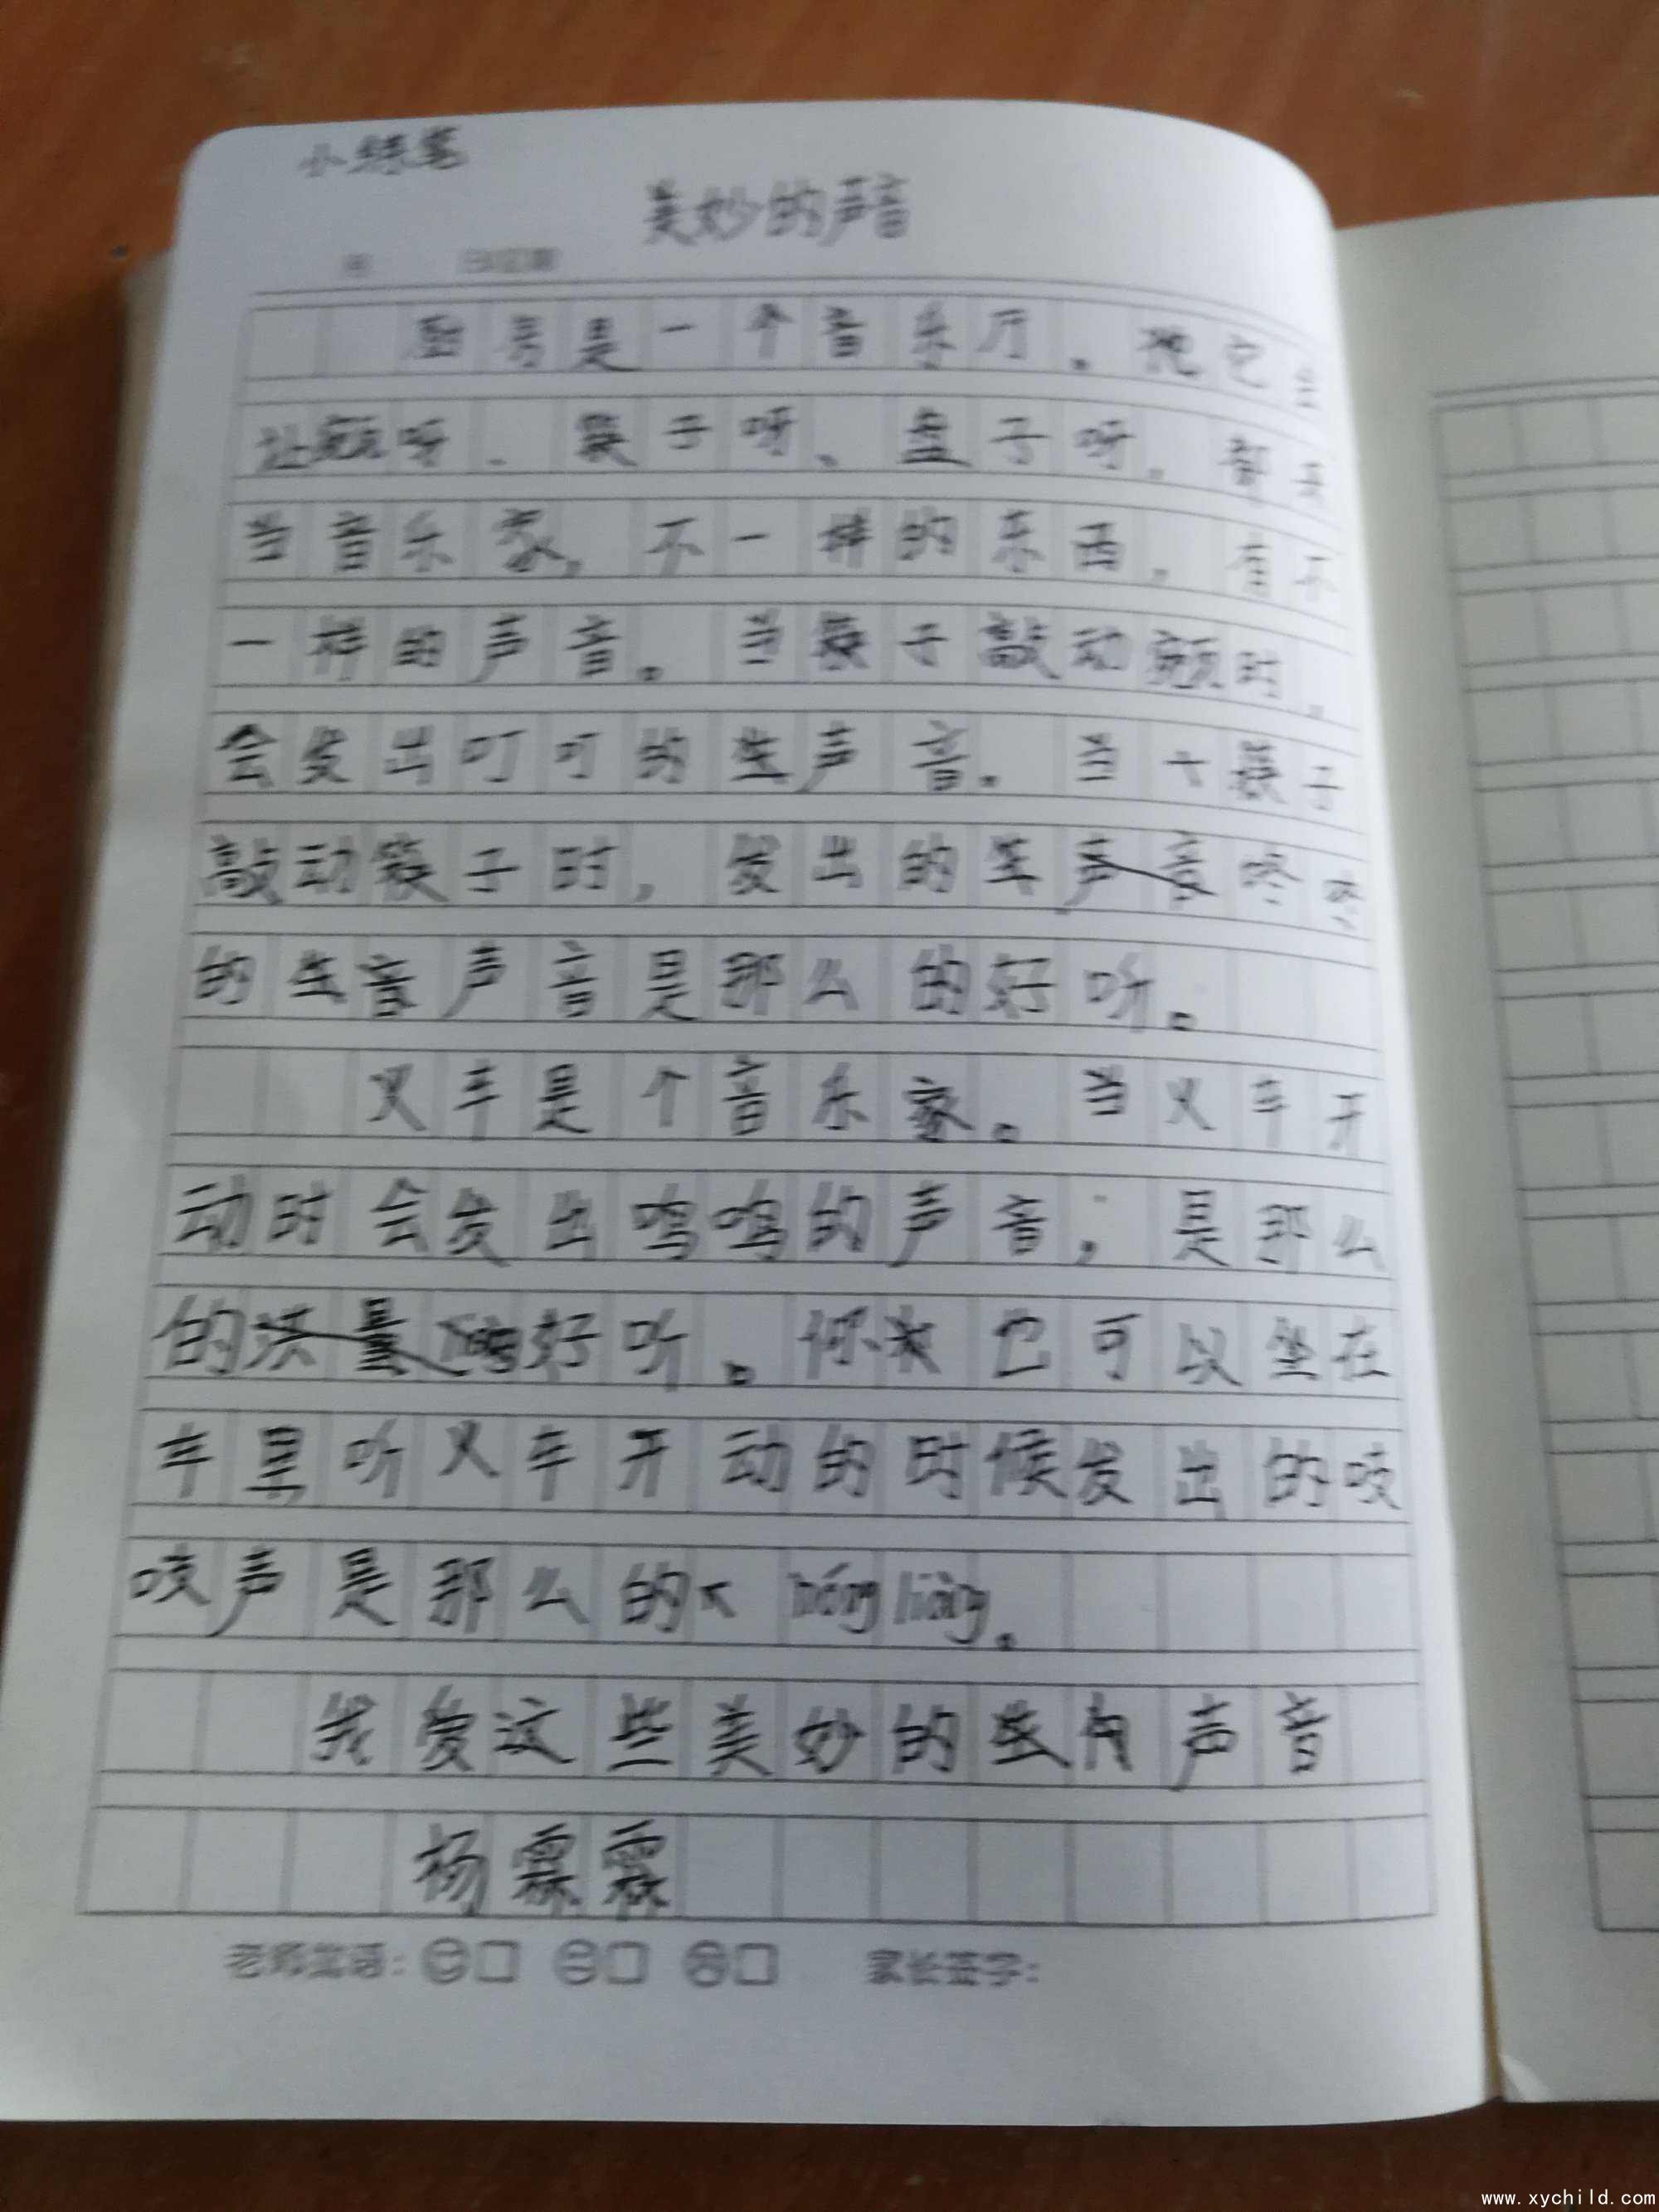 小练笔
美妙的声音
厨房是一个音乐厅。把它
呀、筷子呀、盘子呀。都
当音乐家,不一样的东西,有不
一样的声音。当筷子敲动 时。
会发出叮叮的 声音。当 筷子
敲动筷子时,发出的 声音咚咚
的 音声音是那么的好听。
叉车是个音乐家。当叉车开
动时会发出鸣鸣的声音,是那么
的洪量 好听。你我也可以坐在
车里听叉车开动的时候发出的咬
咬声是那么的 hóng liàng。
我爱这些美妙的 声音
杨霖霖
老师鼓励: 家长签字:
www.xychild.com